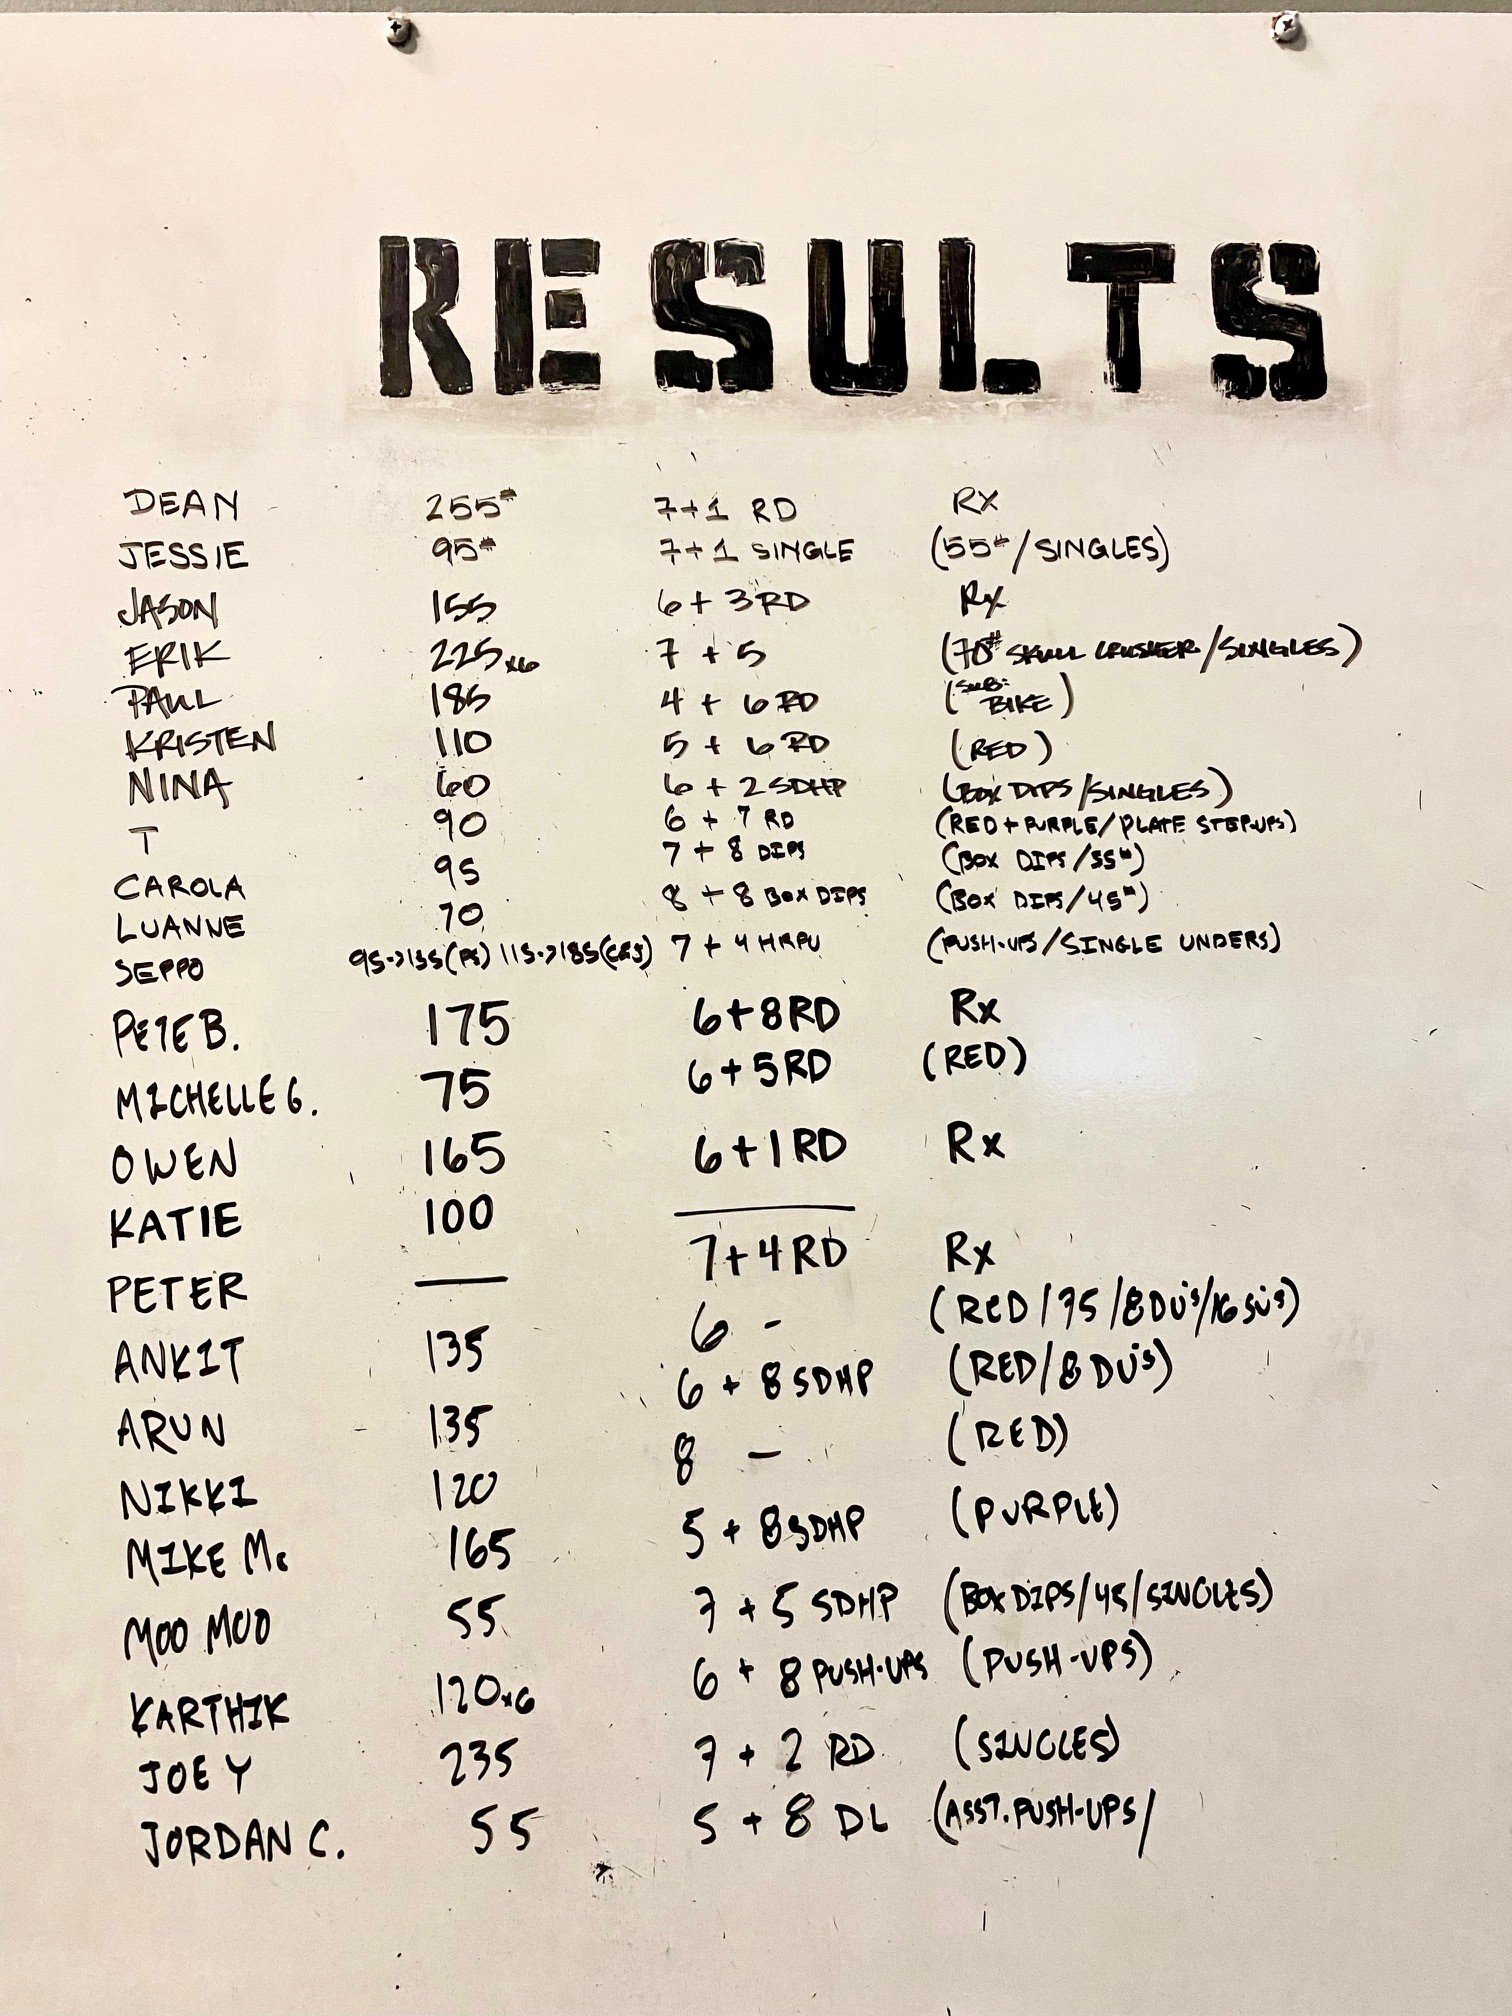 RESULTS
DEAN 255# 7+1 RD RX
JESSIE 95# 7+1 SINGLE (55#/SINGLES)
JASON 155 6+3RD Rx
ERIK 225x6 7+5 (70# SKULL CRUSHER/SINGLES)
PAUL 185 4+6RD (SUB: BIKE)
KRISTEN 110 5+6RD (RED)
NINA 60 6+2SDHP (BOX DIPS/SINGLES)
T 90 6+7 RD (RED+PURPLE/PLATE STEP-UPS)
CAROLA 95 7+8 DIPS (BOX DIPS/55#)
LUANNE 70 8+8 BOX DIPS (BOX DIPS/45#)
SEPPO 95->135(PS) 115->185(C&J) 7+4HRPU (PUSH-UPS/SINGLE UNDERS)
PETE B. 175 6+8RD Rx
MICHELLE G. 75 6+5RD (RED)
OWEN 165 6+1RD Rx
KATIE 100 —
PETER — 7+4RD Rx
ANKIT 135 6 - (RED/75/8DU's/16SU's)
ARUN 135 6+8SDHP (RED/8DU's)
NIKKI 120 8 - (RED)
MIKE Mc 165 5+8SDHP (PURPLE)
MOO MOO 55 7+5 SDHP (BOX DIPS/45/SINGLES)
KARTHIK 120x6 6+8PUSH-UPS (PUSH-UPS)
JOE Y 235 7+2 RD (SINGLES)
JORDAN C. 55 5+8 DL (ASST.PUSH-UPS/